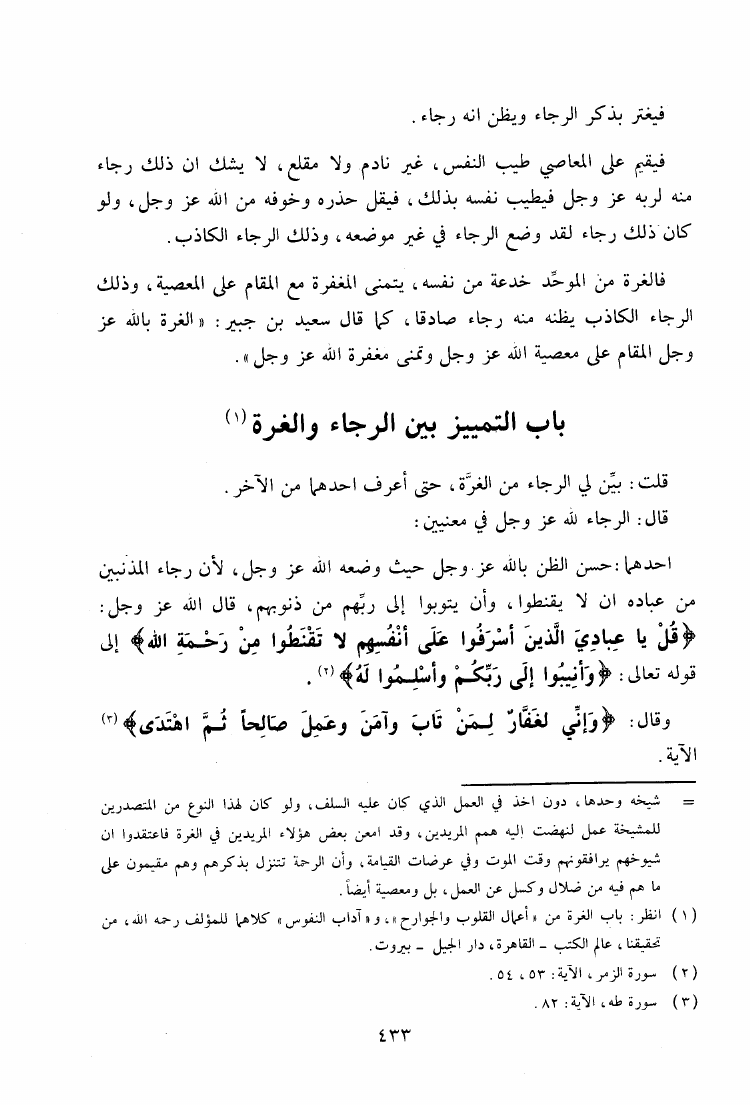 فيغتر بذكر الرجاء ويظن انه رجاء .
فيقيم على المعاصي طيب النفس، غير نادم ولا مقلع، لا يشك ان ذلك رجاء
منه لربه عز وجل فيطيب نفسه بذلك، فيقل حذره وخوفه من الله عز وجل، ولو
كان ذلك رجاء لقد وضع الرجاء في غير موضعه، وذلك الرجاء الكاذب.
فالغرة من الموحِّد خدعة من نفسه، يتمنى المغفرة مع المقام على المعصية، وذلك
الرجاء الكاذب يظنه منه رجاء صادقا، كما قال سعيد بن جبير: «الغرة بالله عز
وجل المقام على معصية الله عز وجل وتمنى مغفرة الله عز وجل».
باب التمييز بين الرجاء والغرة (١)
قلت: بيِّن لي الرجاء من الغرَّة، حتى أعرف احدهما من الآخر.
قال: الرجاء لله عز وجل في معنيين:
احدهما: حسن الظن بالله عز وجل حيث وضعه الله عز وجل، لأن رجاء المذنبين
من عباده ان لا يقنطوا، وأن يتوبوا إلى ربِّهم من ذنوبهم، قال الله عز وجل:
﴿قُلْ يا عِبادِيَ الَّذينَ أسْرَفُوا عَلَى أنْفُسِهِم لا تَقْنَطُوا مِنْ رَحْمَةِ الله﴾ إلى
قوله تعالى: ﴿وَأنِيبُوا إلَى رَبِّكُمْ وأسْلِمُوا لَهُ﴾ (٢).
وقال: ﴿وَإنِّي لغَفَّارٌ لِمَنْ تَابَ وآمَنَ وعَمِلَ صَالِحاً ثُمَّ اهْتَدَى﴾ (٣)
الآية.
= شيخه وحدها، دون اخذ في العمل الذي كان عليه السلف، ولو كان لهذا النوع من المتصدرين
للمشيخة عمل لنهضت إليه همم المريدين، وقد امعن بعض هؤلاء المريدين في الغرة فاعتقدوا ان
شيوخهم يرافقونهم وقت الموت وفي عرضات القيامة، وأن الرحمة تتنزل بذكرهم وهم مقيمون على
ما هم فيه من ضلال وكسل عن العمل، بل ومعصية أيضاً.
(١) انظر: باب الغرة من «أعمال القلوب والجوارح»، و«آداب النفوس» كلاهما للمؤلف رحمه الله، من
تحقيقنا، عالم الكتب - القاهرة، دار الجيل - بيروت.
(٢) سورة الزمر، الآية: ٥٣، ٥٤.
(٣) سورة طه، الآية: ٨٢.
٤٣٣